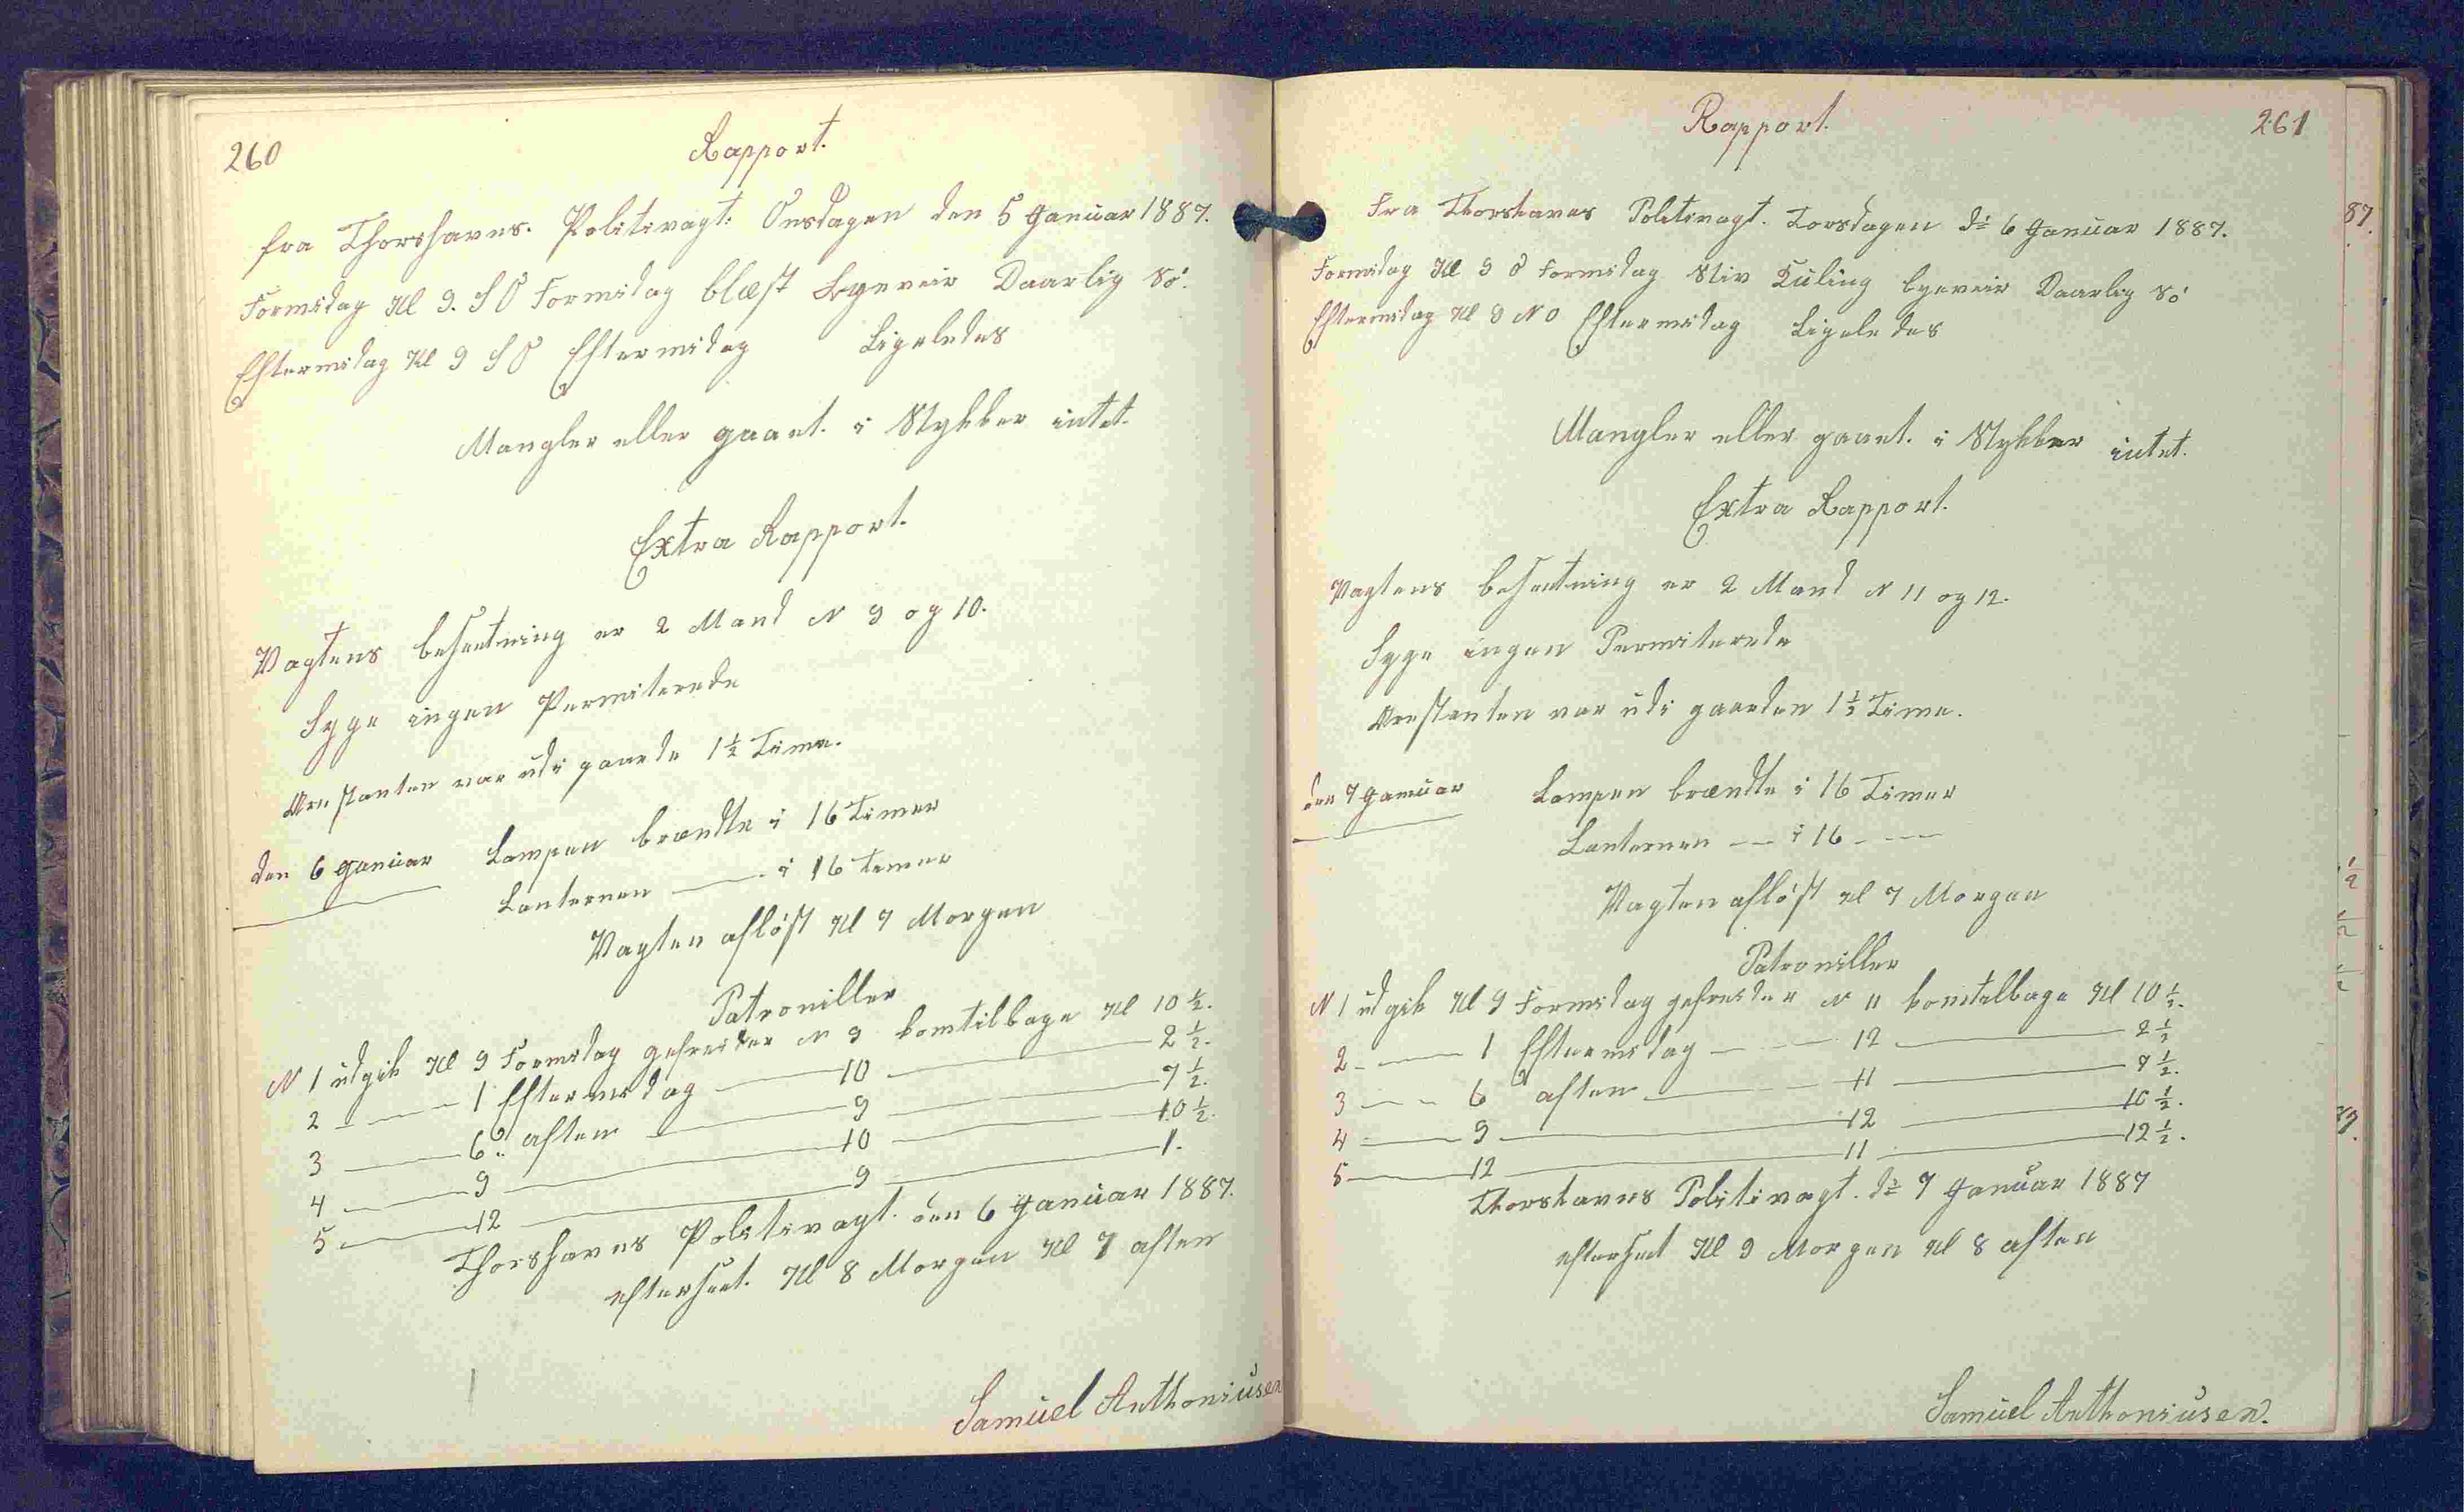 260
Rapport.
fra Thorshavns. Politivagt: Onsdagen den 5 Januar 1887.
Formidag Kl 9. S O Formidag blæst Bygeveir Daarlig Sö.
Eftermidag Kl 9 S O Eftermidag Ligeledes
Mangler eller gaaet. i Stykker intet.
Extra Rapport.
Vagtens besætning er 2 Mand N 9 og 10.
Syge ingen Permiterede
Arrestanten var udi gaarde 1½ Time.
den 6 Januar Lampen brændte i 16 Timer
Lanternen — i 16 Timer
Vagten aflöst Kl 7 Morgen
Patroniller
N 1 udgik Kl 9 Formidag gefreider N 9 komtilbage Kl 10½.
2 — 1 Eftermidag — 10 — 2½.
3 — 6 aften — 9 — 7½.
4 — 9 — 10 — 10½.
5 — 12 — 9 — 1.
Thorshavns Politivagt. den 6 Januar 1887.
efterseet. Kl 8 Morgen Kl 7 aften
Samuel Anthoniusen
Rapport. 261
Fra Thorshavns Politivagt. Torsdagen dn 6 Januar 1887.
Formidag Kl 9 O Formidag Stiv Kuling bgeveir Daarlig Sö
Eftermidag Kl 9 N O Eftermidag Ligeledes
Mangler eller gaaet. i Stykker intet.
Extra Rapport.
Vagtens besætning er 2 Mand N 11 og 12.
Syge ingen Permiterede
Arrestanten var udi gaarden 1½ Time.
den 7 Januar Lampen brændte i 16 Timer
Lanternen — i 16 —
Vagten aflöst Kl 7 Morgen
Patroniller
N 1 udgik Kl 9 Formidag gefreider N 11 komtilbage Kl 10½.
2 — 1 Eftermidag — 12 — 2½
3 — 6 aften — 11 — 7½.
4 — 9 — 12 — 10½.
5 — 12 — 11 — 12½.
Thorshavns Politivagt. dn 7 Januar 1887
efterseet Kl 9 Morgen Kl 8 aften
Samuel Anthoniusen.
87.
½